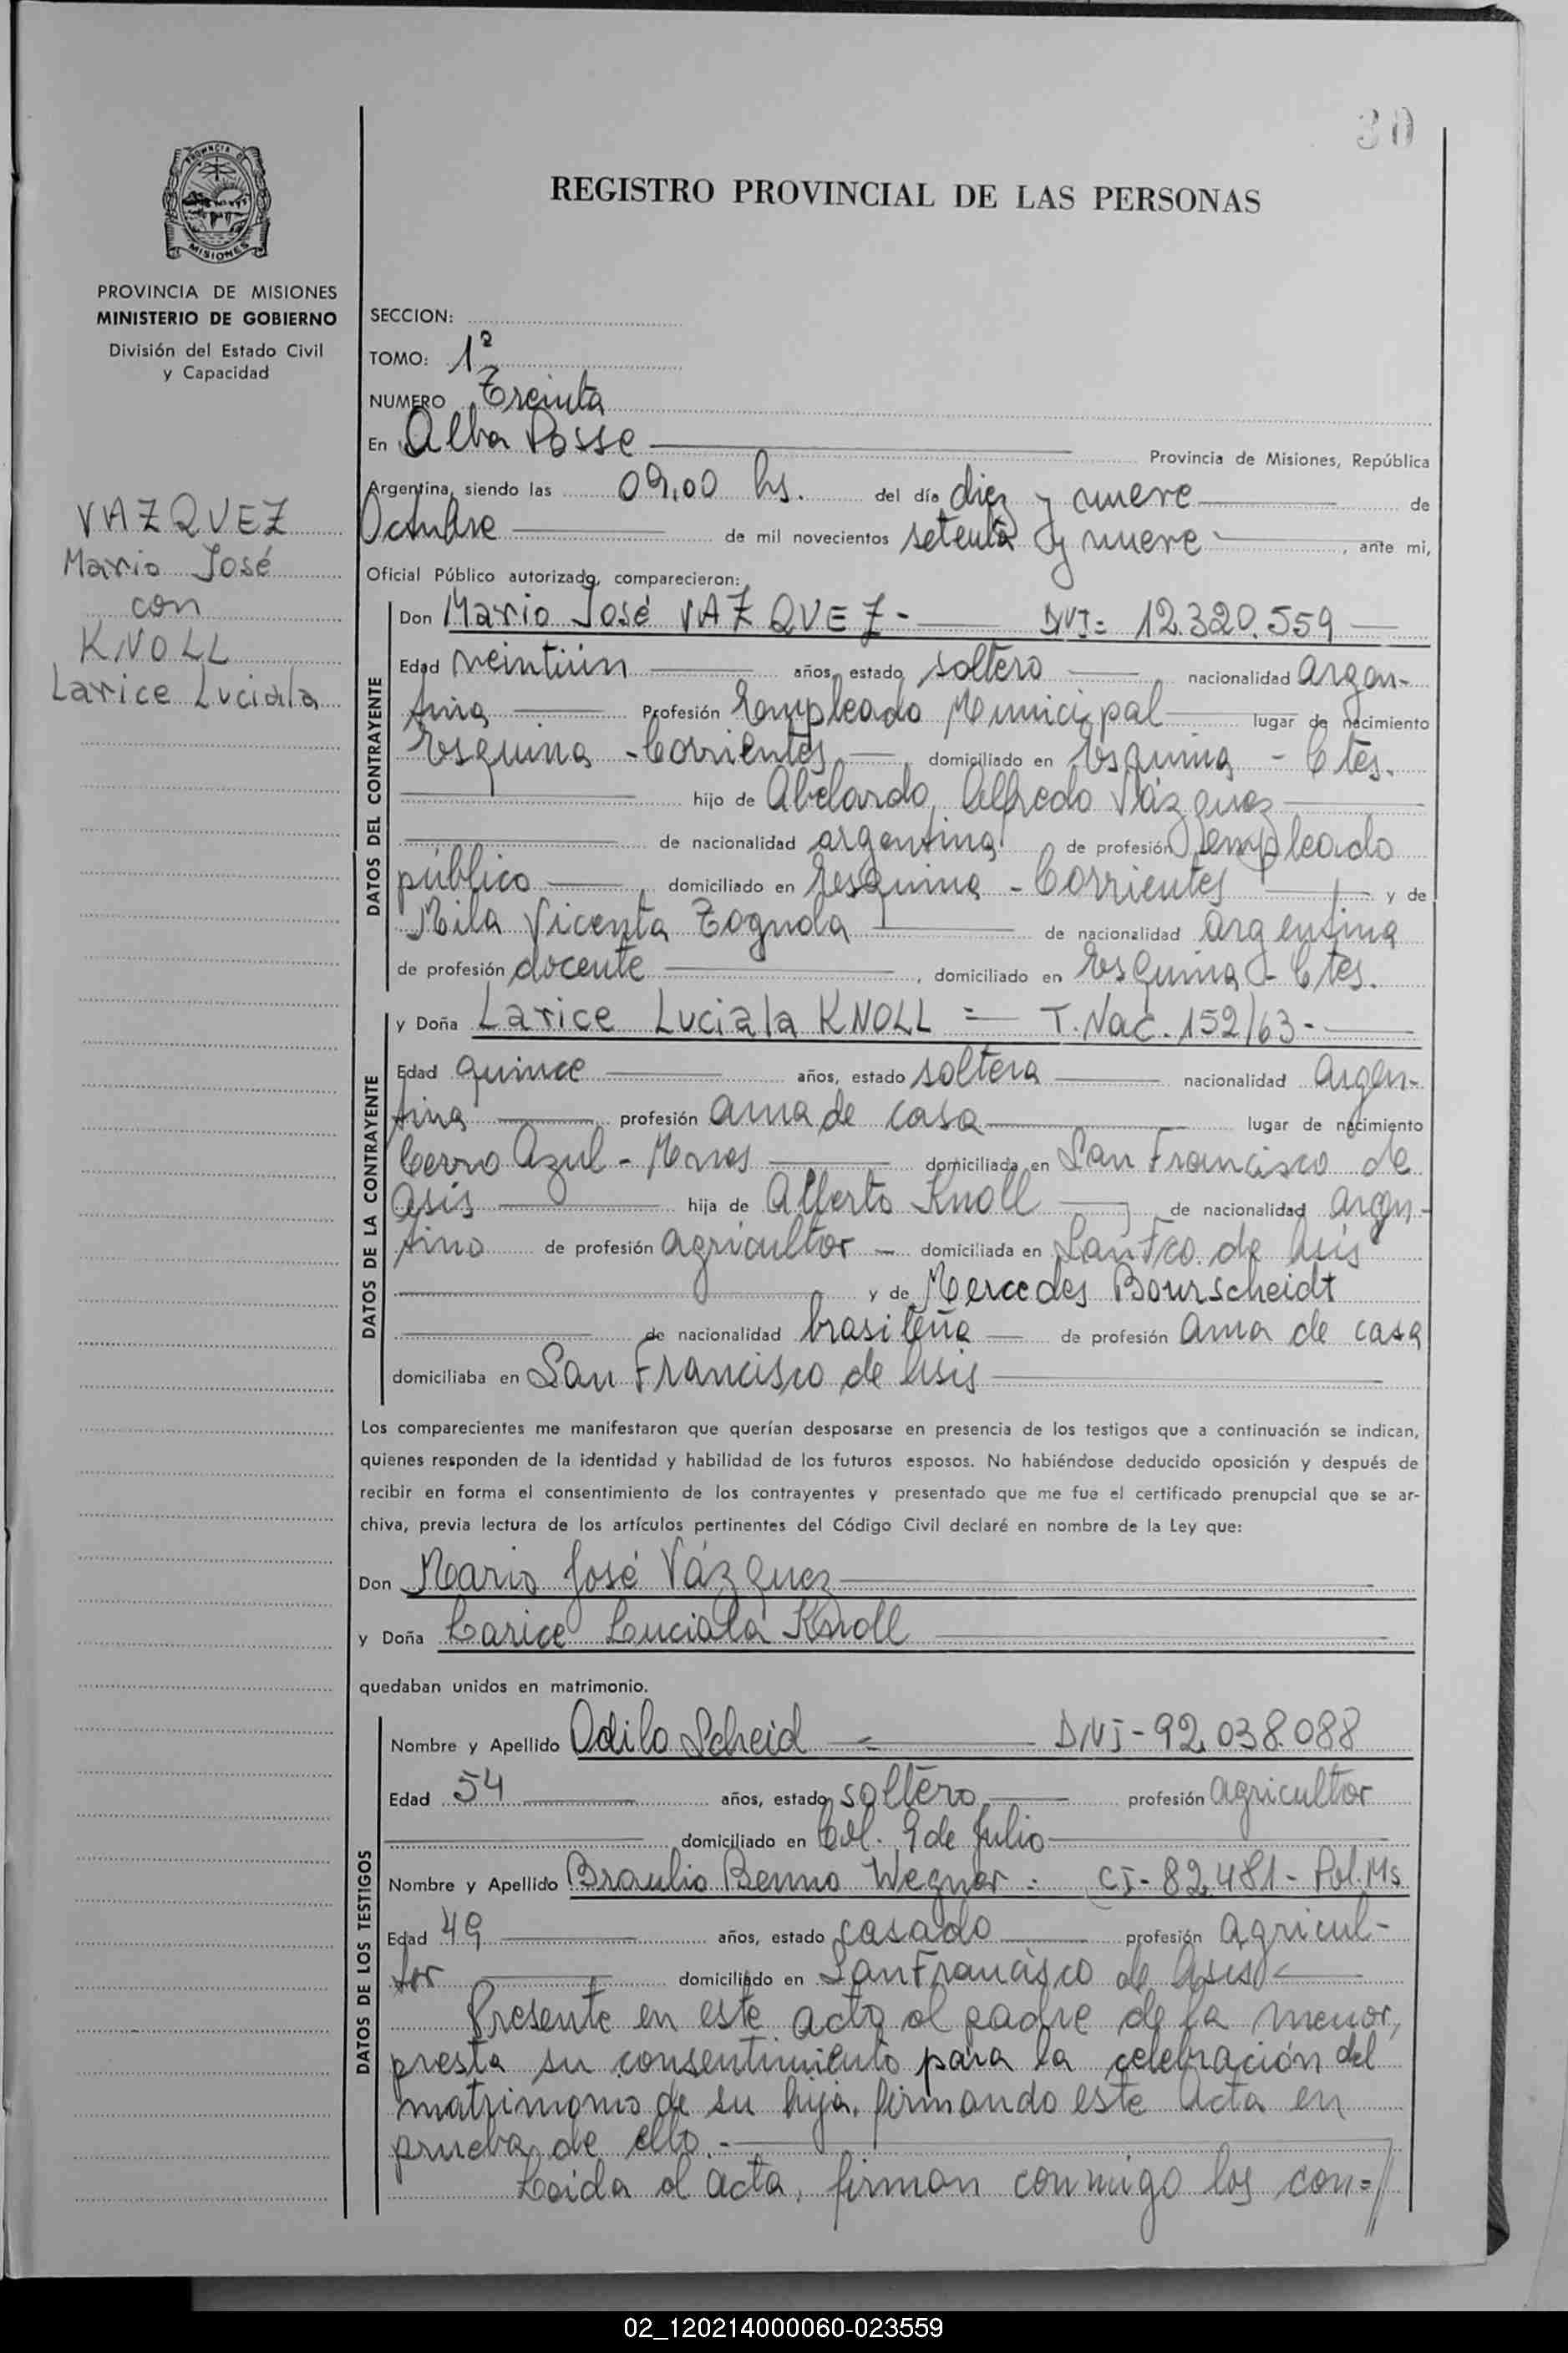 30
PROVINCIA DE
MISIONES
REGISTRO PROVINCIAL DE LAS PERSONAS
PROVINCIA DE MISIONES
MINISTERIO DE GOBIERNO
División del Estado Civil
y Capacidad
VAZQUEZ
Mario José
con
KNOLL
Larice Luciala
SECCION:
TOMO: 1º
NUMERO Treinta
En Alba Posse Provincia de Misiones, República
Argentina, siendo las 09,00 hs. del día diez y nueve de
Octubre de mil novecientos setenta y nueve, ante mi,
Oficial Público autorizado, comparecieron:
DATOS DEL CONTRAYENTE
Don Mario José VAZQUEZ - DNI= 12.320.559
Edad veintiún años, estado soltero nacionalidad argen-
tina Profesión Empleado Municipal lugar de nacimiento
Esquina - Corrientes domiciliado en Esquina - Ctes.
hijo de Abelardo Alfredo Vázquez
de nacionalidad argentina de profesión empleado
público domiciliado en Esquina - Corrientes y de
Mila Vicenta Tognola de nacionalidad argentina
de profesión docente, domiciliado en Esquina - Ctes.
DATOS DE LA CONTRAYENTE
y Doña Larice Luciala KNOLL = T. Nac. 152/63-
Edad quince años, estado soltera nacionalidad argen-
tina profesión ama de casa lugar de nacimiento
Cerro Azul - Mnes domiciliada en San Francisco de
Asís hija de Alberto Knoll de nacionalidad argen-
tino de profesión agricultor - domiciliada en San Fco. de Asís
y de Mercedes Bourscheidt
de nacionalidad brasileña de profesión ama de casa
domiciliaba en San Francisco de Asis
Los comparecientes me manifestaron que querían desposarse en presencia de los testigos que a continuación se indican,
quienes responden de la identidad y habilidad de los futuros esposos. No habiéndose deducido oposición y después de
recibir en forma el consentimiento de los contrayentes y presentado que me fue el certificado prenupcial que se ar-
chiva, previa lectura de los artículos pertinentes del Código Civil declaré en nombre de la Ley que:
Don Mario José Vázquez
y Doña Larice Luciala Knoll
quedaban unidos en matrimonio.
DATOS DE LOS TESTIGOS
Nombre y Apellido Odilo Scheid = DNI-92.038.088
Edad 54 años, estado soltero profesión agricultor
domiciliado en Col. 9 de Julio
Nombre y Apellido Braulio Benno Wegner = CI-82.481- Pol. Ms
Edad 49 años, estado casado profesión agricul-
tor domiciliado en San Francisco de Asis
Presente en este acto el padre de la menor,
presta su consentimiento para la celebración del
matrimonio de su hija, firmando este Acta en
prueba de ello.-
Leída el acta, firman conmigo los con=//
02_120214000060-023559